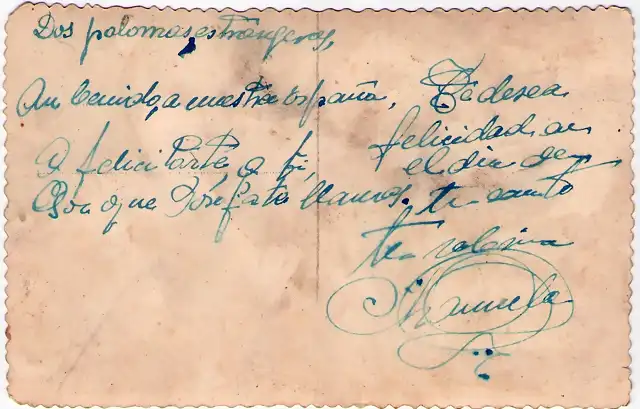 Dos palomas estrangeras,
An benido, a nuestra españa,
A felicitarte, a ti,
Por que Josefa te llamas.
Te desea
felicidad, en
el dia de
tu santo
tu sobrina
Manuela